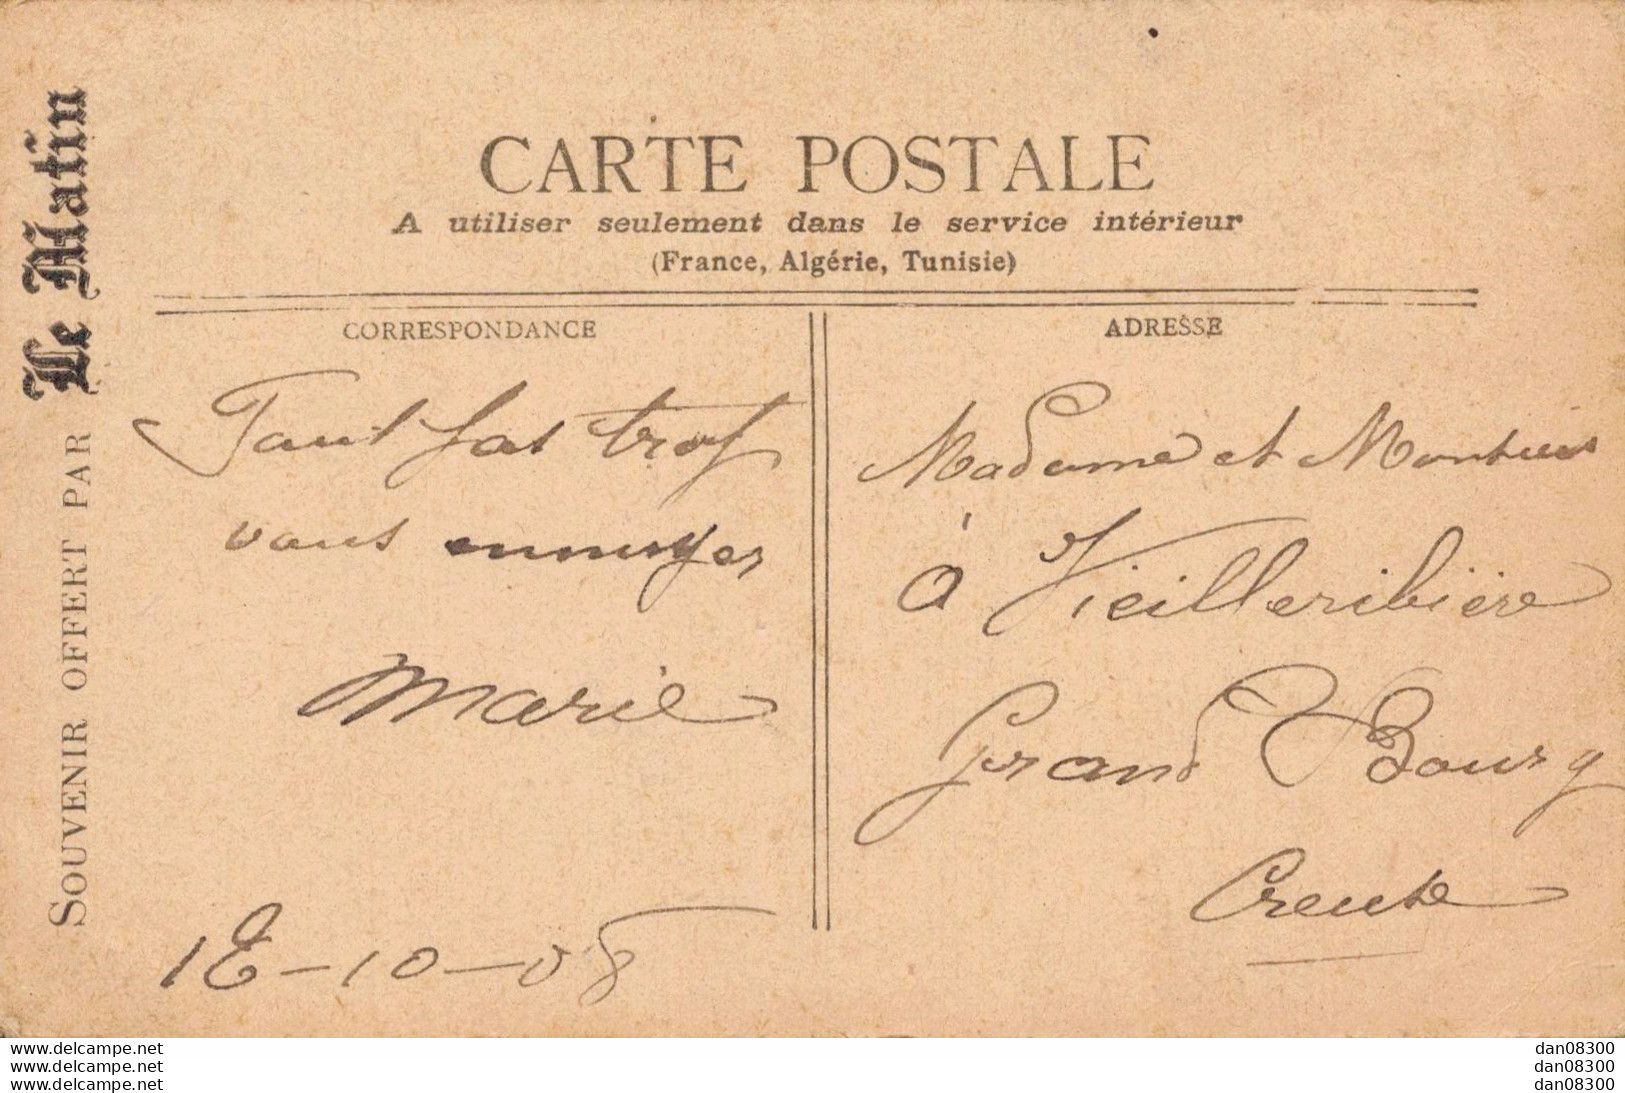 SOUVENIR OFFERT PAR Le Matin
CARTE POSTALE
A utiliser seulement dans le service intérieur
(France, Algérie, Tunisie)
CORRESPONDANCE
vous ennuyer
Marie
ADRESSE
Madame et
à Vieilleribière
Grand Bourg
Creuse
www.delcampe.net
www.delcampe.net
www.delcampe.net
dan08300
dan08300
dan08300